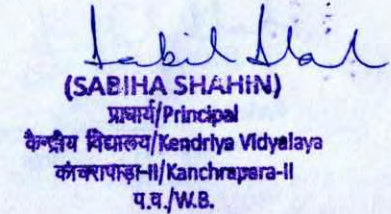 (SABIHA SHAHIN)
प्राचार्य/Principal
केन्द्रीय विद्यालय/Kendriya Vidyalaya
काँचरापाड़ा-II/Kanchrapara-II
प.ब./W.B.